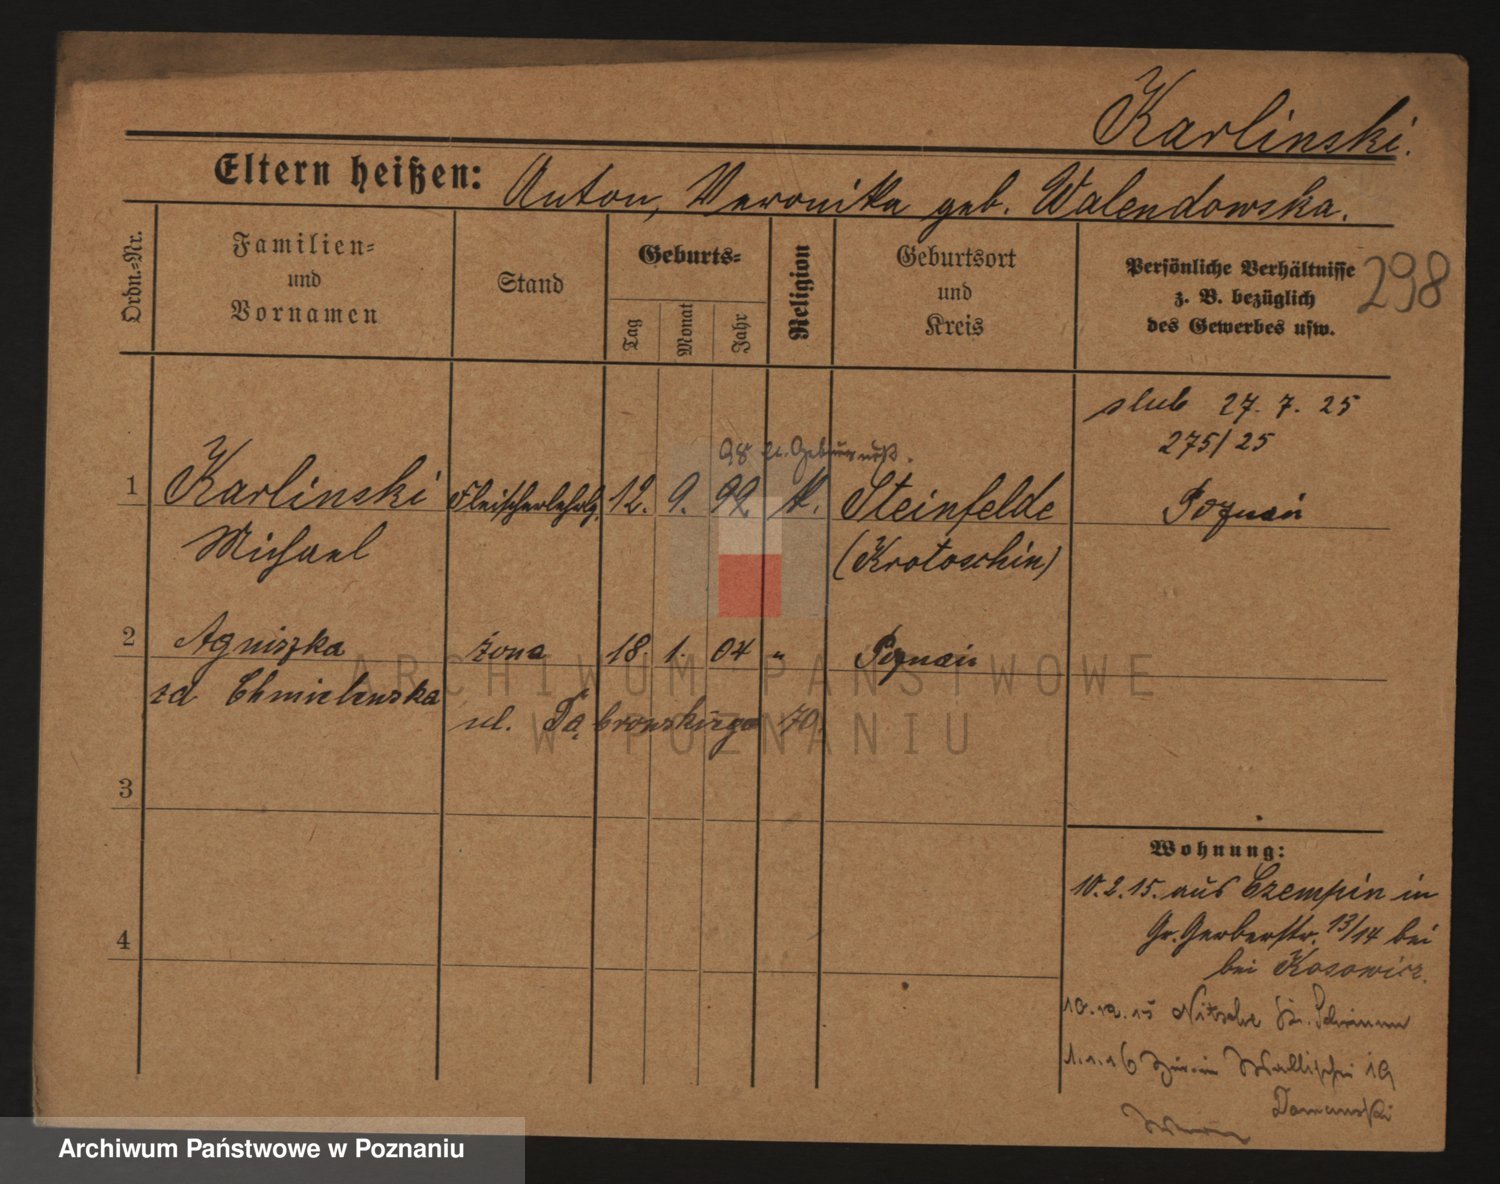 Karlinski.
Eltern heißen: Anton, Veronika geb. Walendowska.
Ordn.=Nr.
Familien=
und
Vornamen
Stand
Geburts=
Tag
Monat
Jahr
Religion
Geburtsort
und
Kreis
Persönliche Verhältnisse
z. B. bezüglich
des Gewerbes usw.
298
ślub 27. 7. 25
275/25
98
1 Karlinski Fleischerlehrlg. 12. 9. 99. k. Steinfelde Poznań
Michael (Krotoschin)
2 Agniszka żona 18. 1. 04 " Poznań
zd Chmielewska
ul. Dąbrowskiego 70.
3
4
Wohnung:
10.2.15. aus Czempin in
Gr. Gerberstr. 13/14 bei
bei Kosowicz.
10.12.15 Nitsche
1.1.16 Zur. in Wallischei 19
Domanski
ARCHIWUM PAŃSTWOWE
W POZNANIU
Archiwum Państwowe w Poznaniu